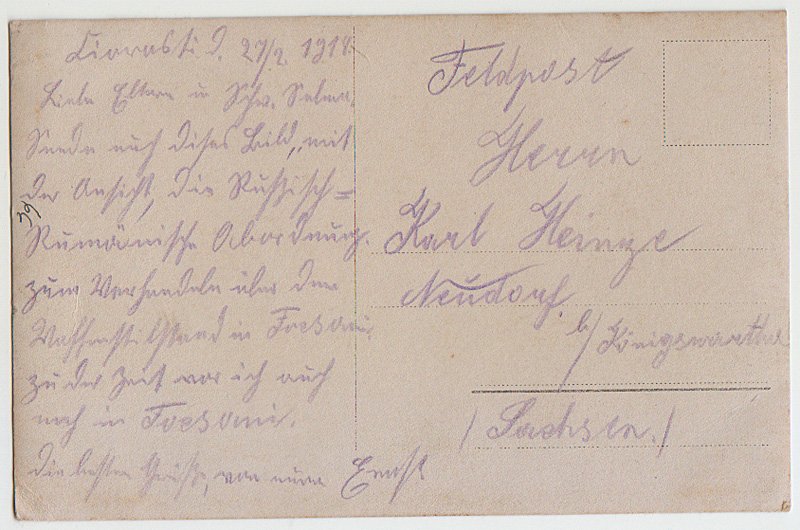 Ciorasti d. 27/2. 1918.
Liebe Eltern u Schw. Selma.
Sende euch dises Bild, mit
der Ansicht, die Russisch=
Rumänische Abordnung.
zum Verhandeln über den
Waffenstillstand in Focsani.
zu der Zeit war ich auch
noch in Focsani.
die besten Grüße, von eurn Ernst
39
Feldpost
Herrn
Karl Heinze
Neudorf
b/ Königswartha
/Sachsen./